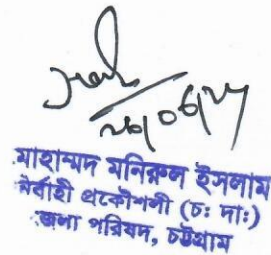 মোহাম্মদ মনিরুল ইসলাম
নির্বাহী প্রকৌশলী (চ: দা:)
জেলা পরিষদ, চট্টগ্রাম